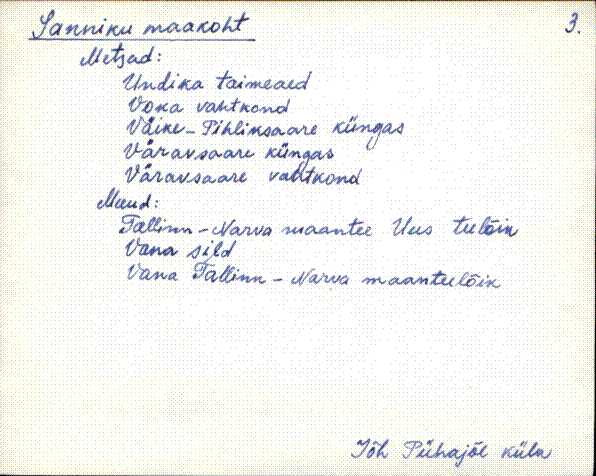 Sanniku maakoht 3.
Metsad:
Undika taimeaed
Voka vahtkond
Väike-Pihliksaare küngas
Väravsaare küngas
Väravsaare vahtkond
Muud:
Tallinn-Narva maantee Uus teelõik
Vana sild
Vana Tallinn-Narva maanteelõik
Jõh Pühajõe küla